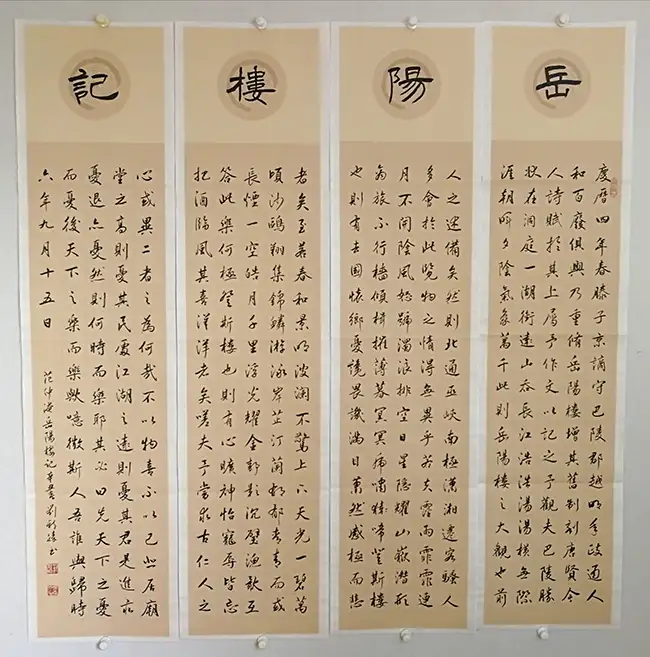 岳
慶曆四年春滕子京謫守巴陵郡越明年政通人
和百廢俱興乃重脩岳陽樓增其舊制刻唐賢今
人詩賦於其上屬予作文以記之予觀夫巴陵勝
狀在洞庭一湖銜遠山吞長江浩浩湯湯橫無際
涯朝暉夕陰氣象萬千此則岳陽樓之大觀也前
陽
人之述備矣然則北通巫峽南極瀟湘遷客騷人
多會於此覽物之情得無異乎若夫霪雨霏霏連
月不開陰風怒號濁浪排空日星隱耀山嶽潛形
商旅不行檣傾楫摧薄暮冥冥虎嘯猿啼登斯樓
也則有去國懷鄉憂讒畏譏滿目蕭然感極而悲
樓
者矣至若春和景明波瀾不驚上下天光一碧萬
頃沙鷗翔集錦鱗游泳岸芷汀蘭郁郁青青而或
長煙一空皓月千里浮光耀金靜影沉璧漁歌互
答此樂何極登斯樓也則有心曠神怡寵辱皆忘
把酒臨風其喜洋洋者矣嗟夫予嘗求古仁人之
記
心或異二者之為何哉不以物喜不以己悲居廟
堂之高則憂其民處江湖之遠則憂其君是進亦
憂退亦憂然則何時而樂耶其必曰先天下之憂
而憂後天下之樂而樂歟噫微斯人吾誰與歸時
六年九月十五日
范仲淹岳陽樓記